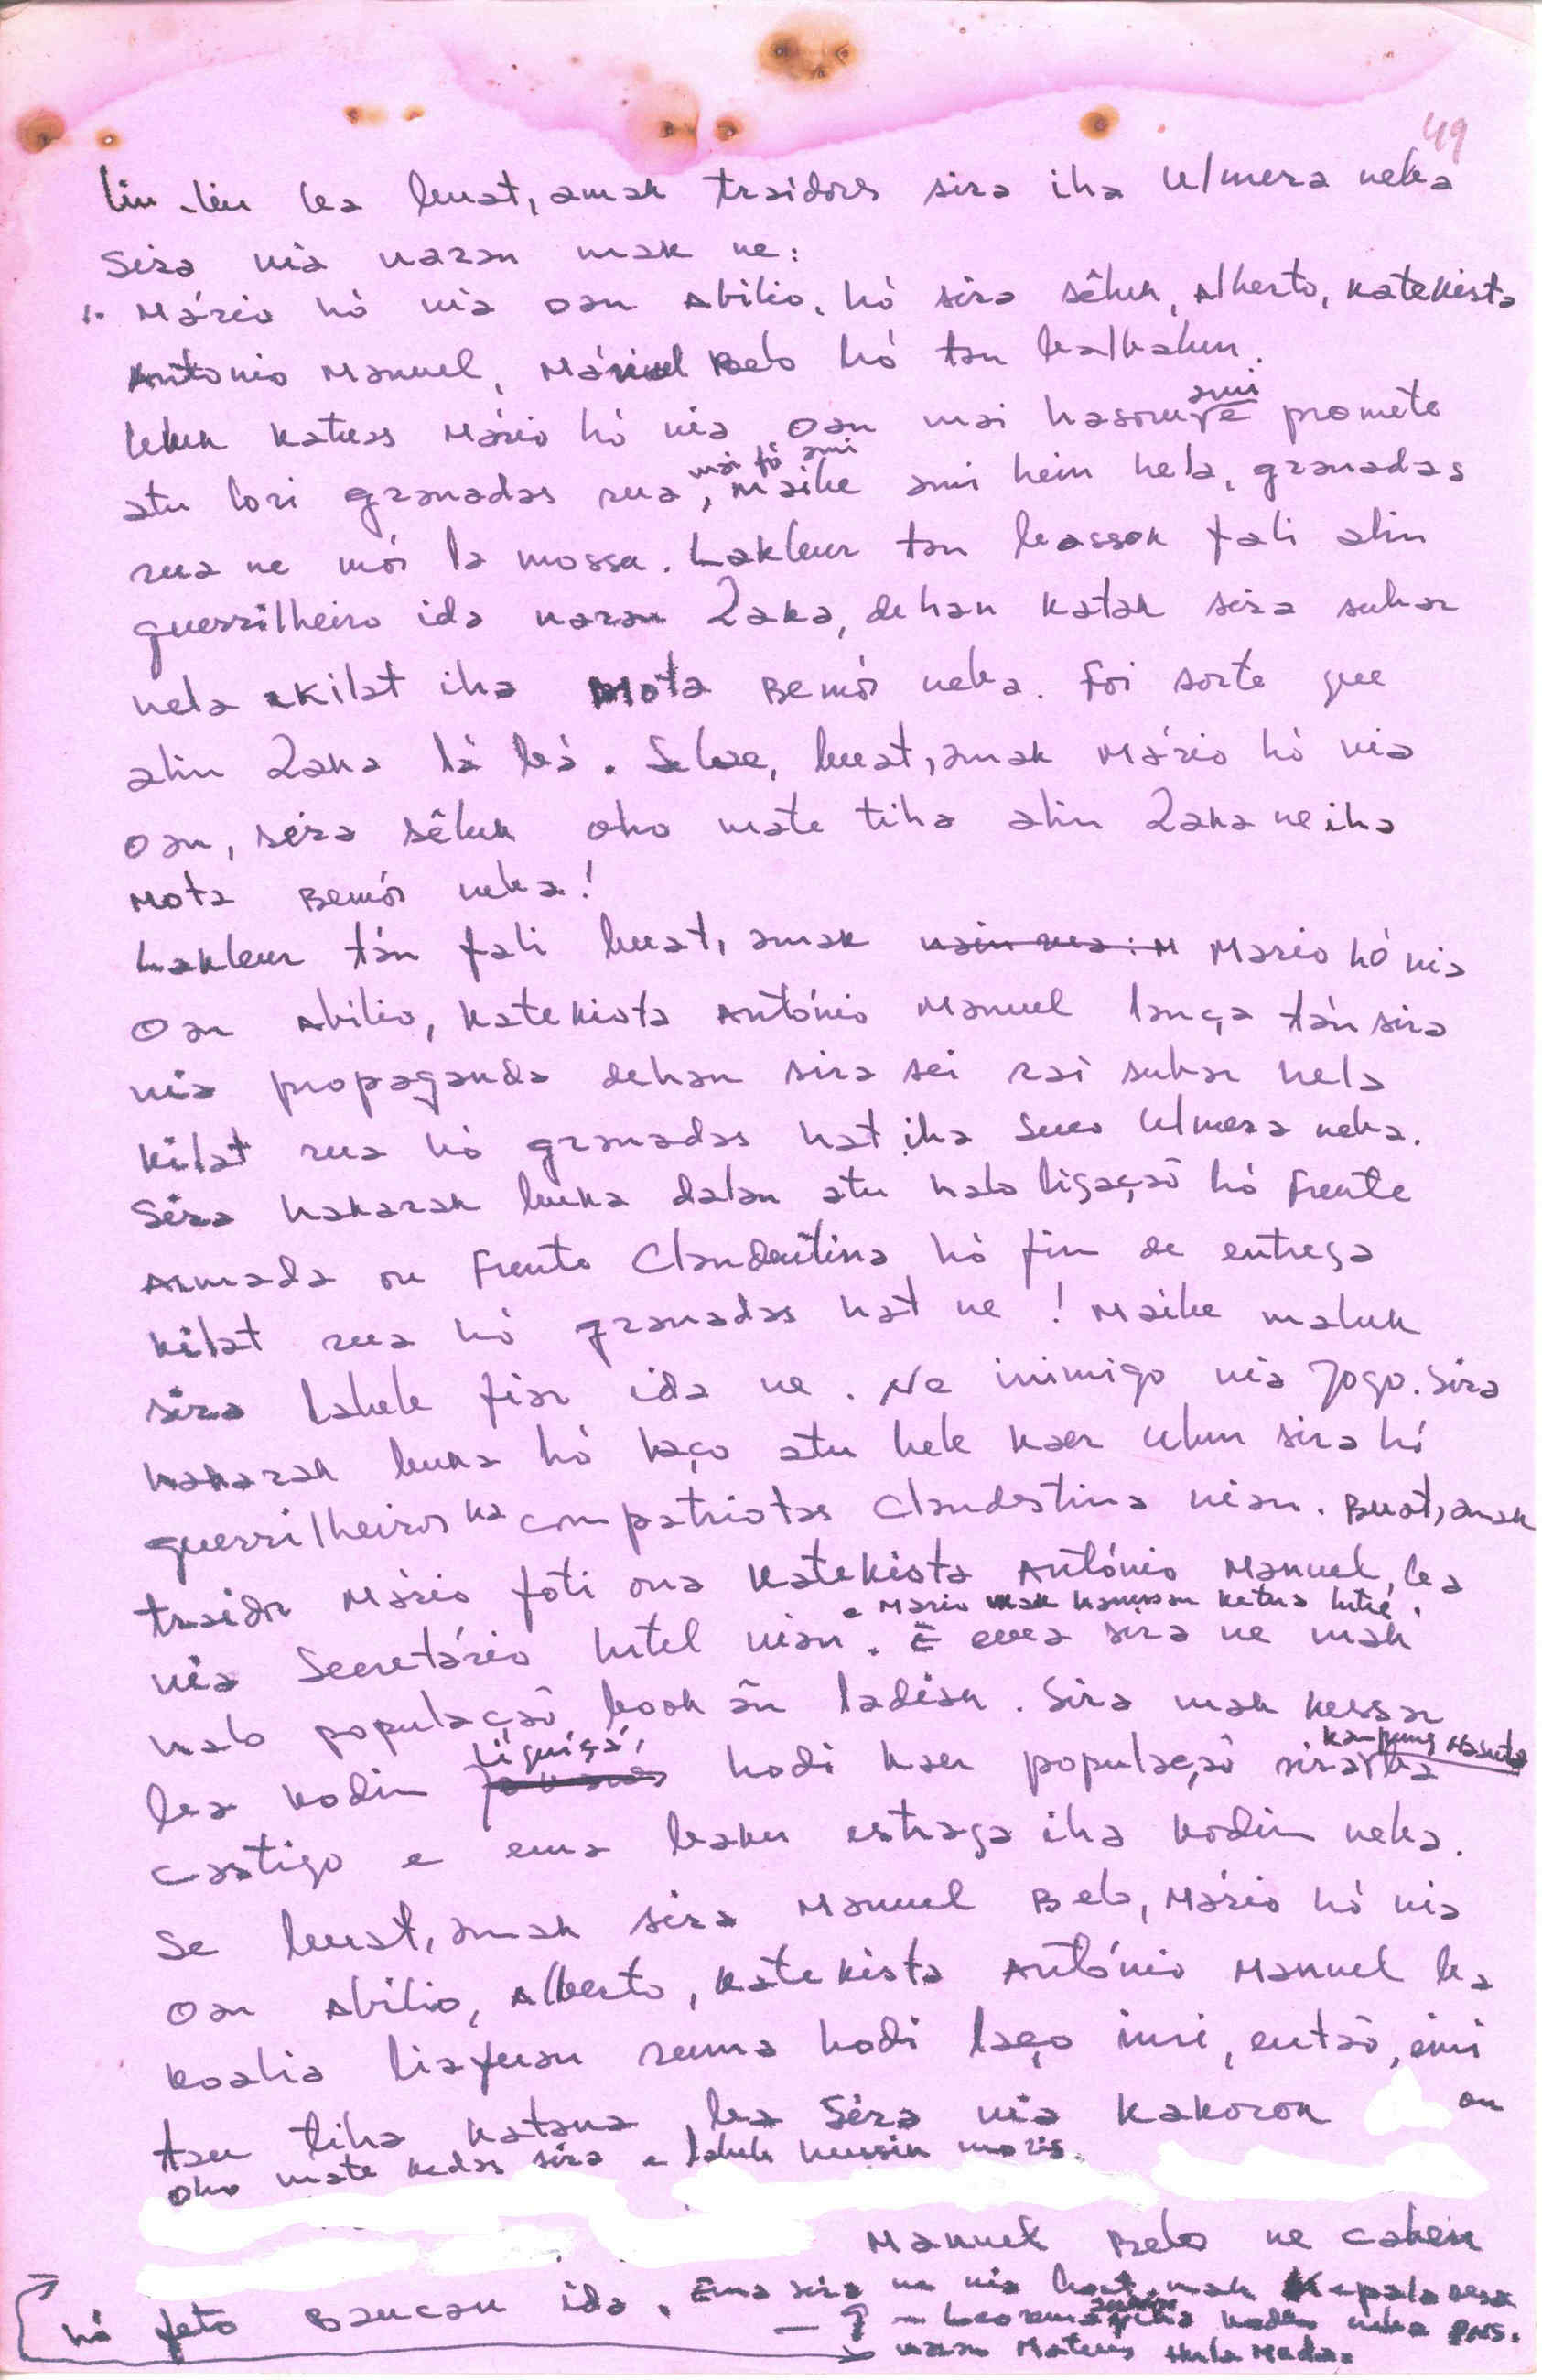 49
liu-liu ba buat, amak traidores sira iha Ulmera neba
Sira nia naran mak ne:
1. Mário hó nia oan Abilio, hó sira sêluk, Alberto, Katekista
António Manuel, Manuel Belo hó tan balbalun.
Uluk Katuas Mário hó nia oan mai hasoru ami e promete
atu lori granadas rua mai fó ami, maibe ami hein hela, granadas
rua ne mói la mossu. Lakleur tan bassok fali alin
guerrilheiro ida naran Zaka, dehan katak sira subar
hela kilat iha Mota Bemós neba. Foi sorte que
alin Zaka lá bá. Selae, buat, amak Mário hó nia
oan, sira sêluk oho mate tiha alin Zaka ne iha
Mota Bemós neba!
Lakleur tán fali buat, amak nain rua: M Mario hó nia
Oan Abilio, Katekista António Manuel lança tán sira
nia propaganda dehan sira sei rai subar hela
kilat rua hó granadas hat iha Suco Ulmera neba.
Sira hakarak buka dalan atu halo ligação hó Frente
Armada ou Frente Clandestina hó fim de entrega
kilat rua hó granadas hat ne! Maibe maluk
sira labele fiar ida ne. Ne inimigo nia Jogo. Sira
hakarak buka hó laço atu bele kaer Ulun sira hó
guerrilheiros ka compatriotas Clandestina nian. Buat, amak
traidor Mário foti ona Katekista António Manuel, ba
nia Secretário Intel nian. e Mario mak hanessan Ketua Intel. E ema sira ne mak
halo população book án ladiak. Sira mak kessar
ba Kodim Liquiçá, hodi kaer população sira kampung Hasuta ba
castigo e ema baku estraga iha Kodim neba.
Se buat, amak sira Manuel Belo, Mário hó nia
Oan Abilio, Alberto, Katekista António Manuel ba
koalia liafuan ruma hodi laço imi, então, imi
tau tiha katana ba Sira nia kakorok ou
oho mate kedas sira e labele hussik moris.
Manuel Belo ne caben
hó feto Baucau ida. Ema sira ne nia boot mak Kepala desa
neba PNS.
naran Mateus